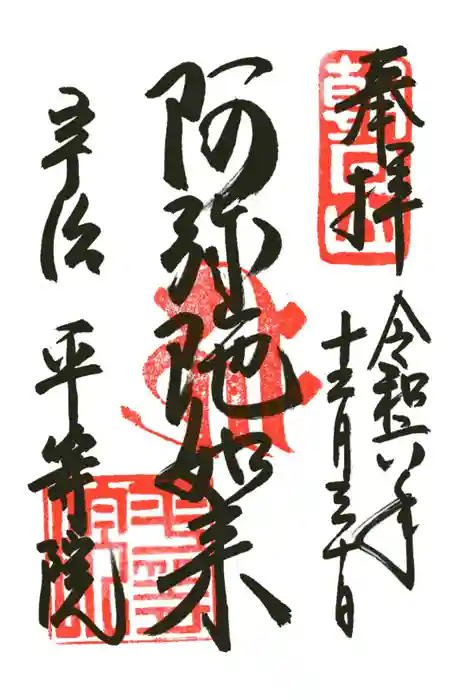 奉拝
朝日山
令和六年
十二月三十日
阿弥陁如来
宇治 平等院